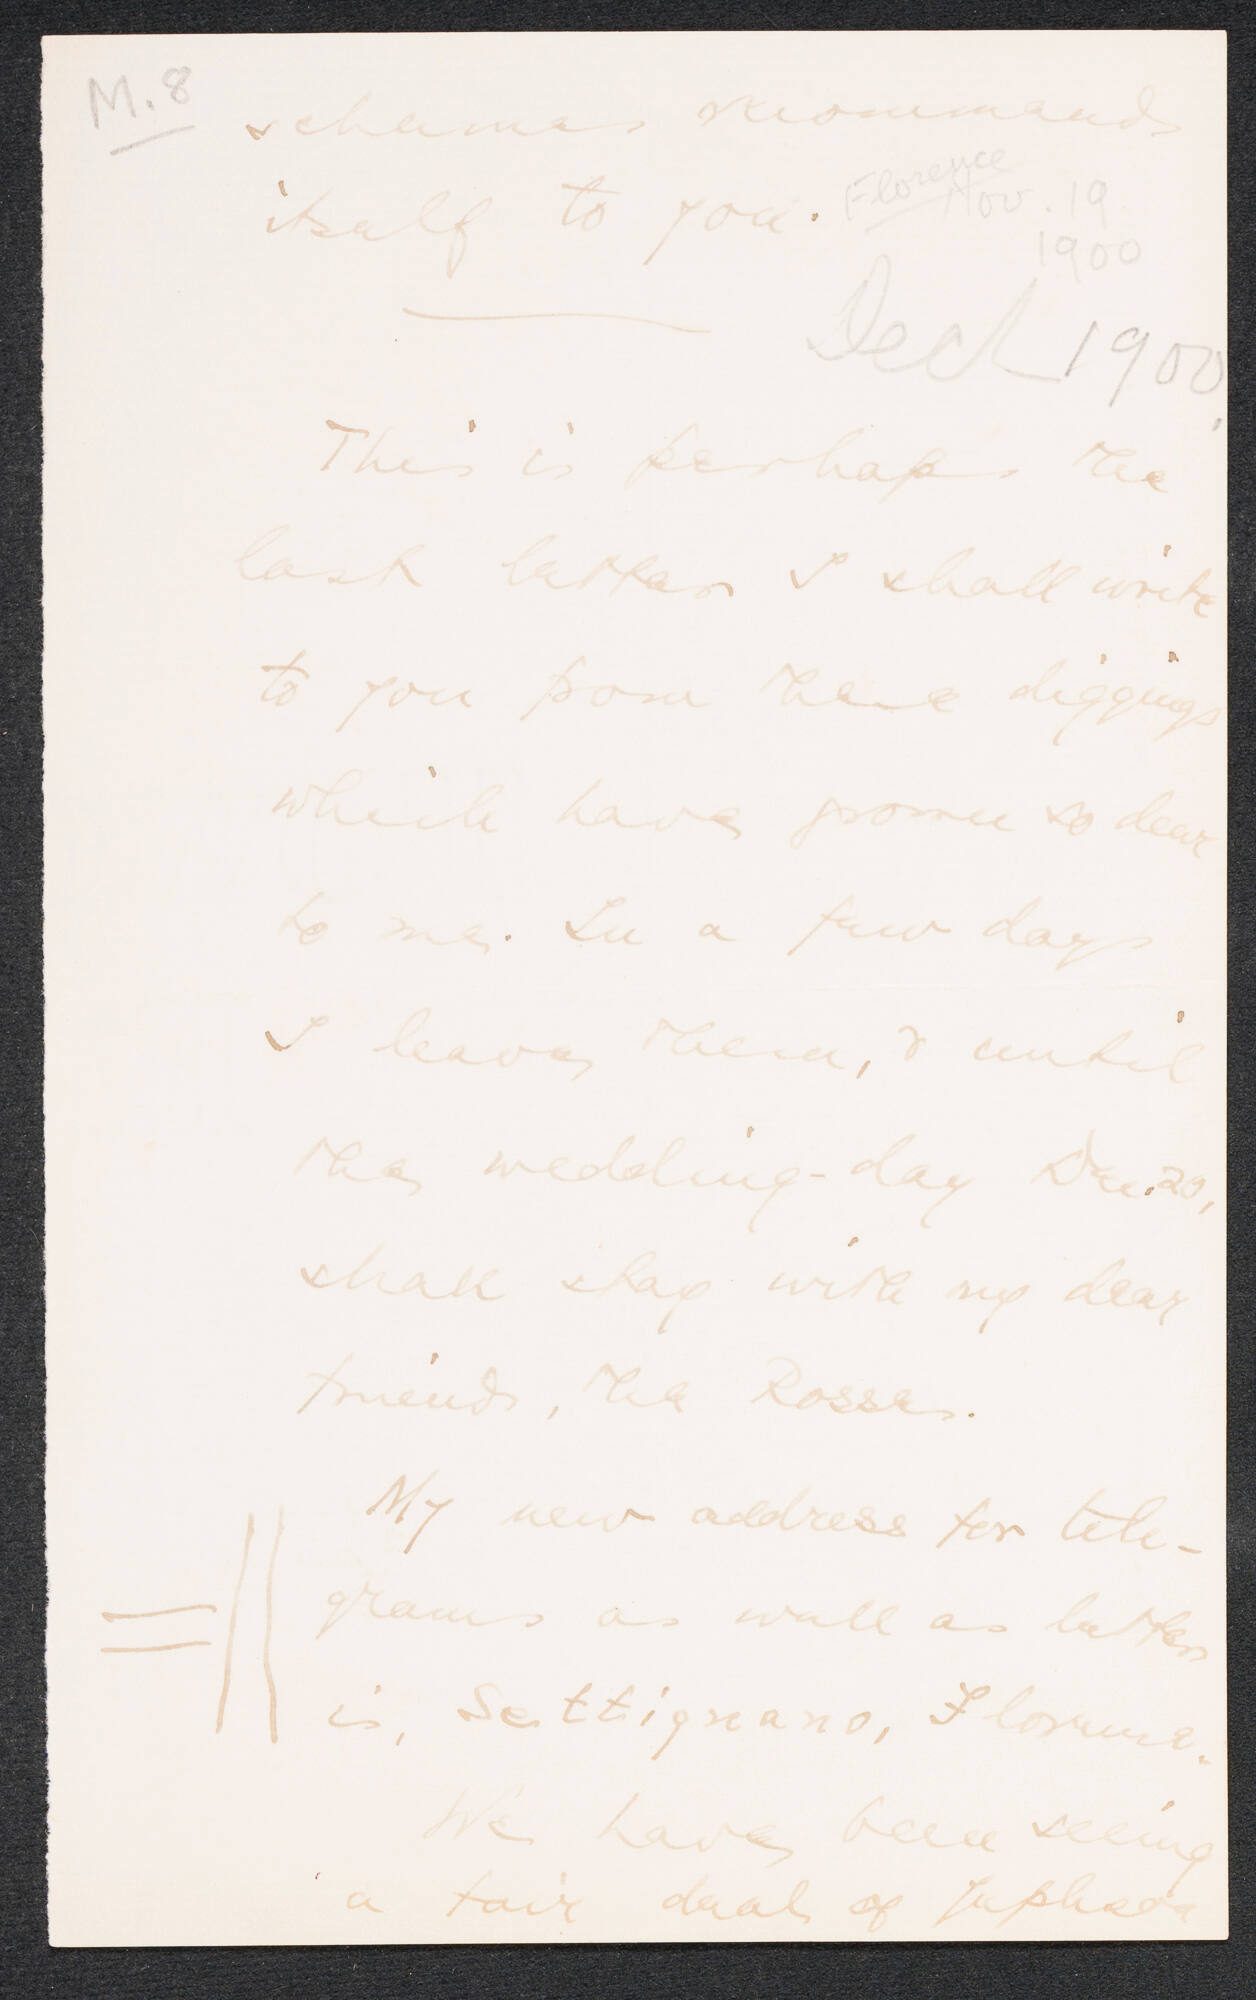 M. 8
schemes recommends
itself to you.
Florence
Nov. 19
1900
Dec 1900.
This is perhaps the
last letter I shall write
to you from these diggings
which have grown so dear
to me. In a few days
I leave them, & until
the wedding-day Dec. 20,
shall stay with my dear
friends, the Rosses.
My new address for tele-
grams as well as letters
is, Settignano, Florence.
We have been seeing
a fair deal of